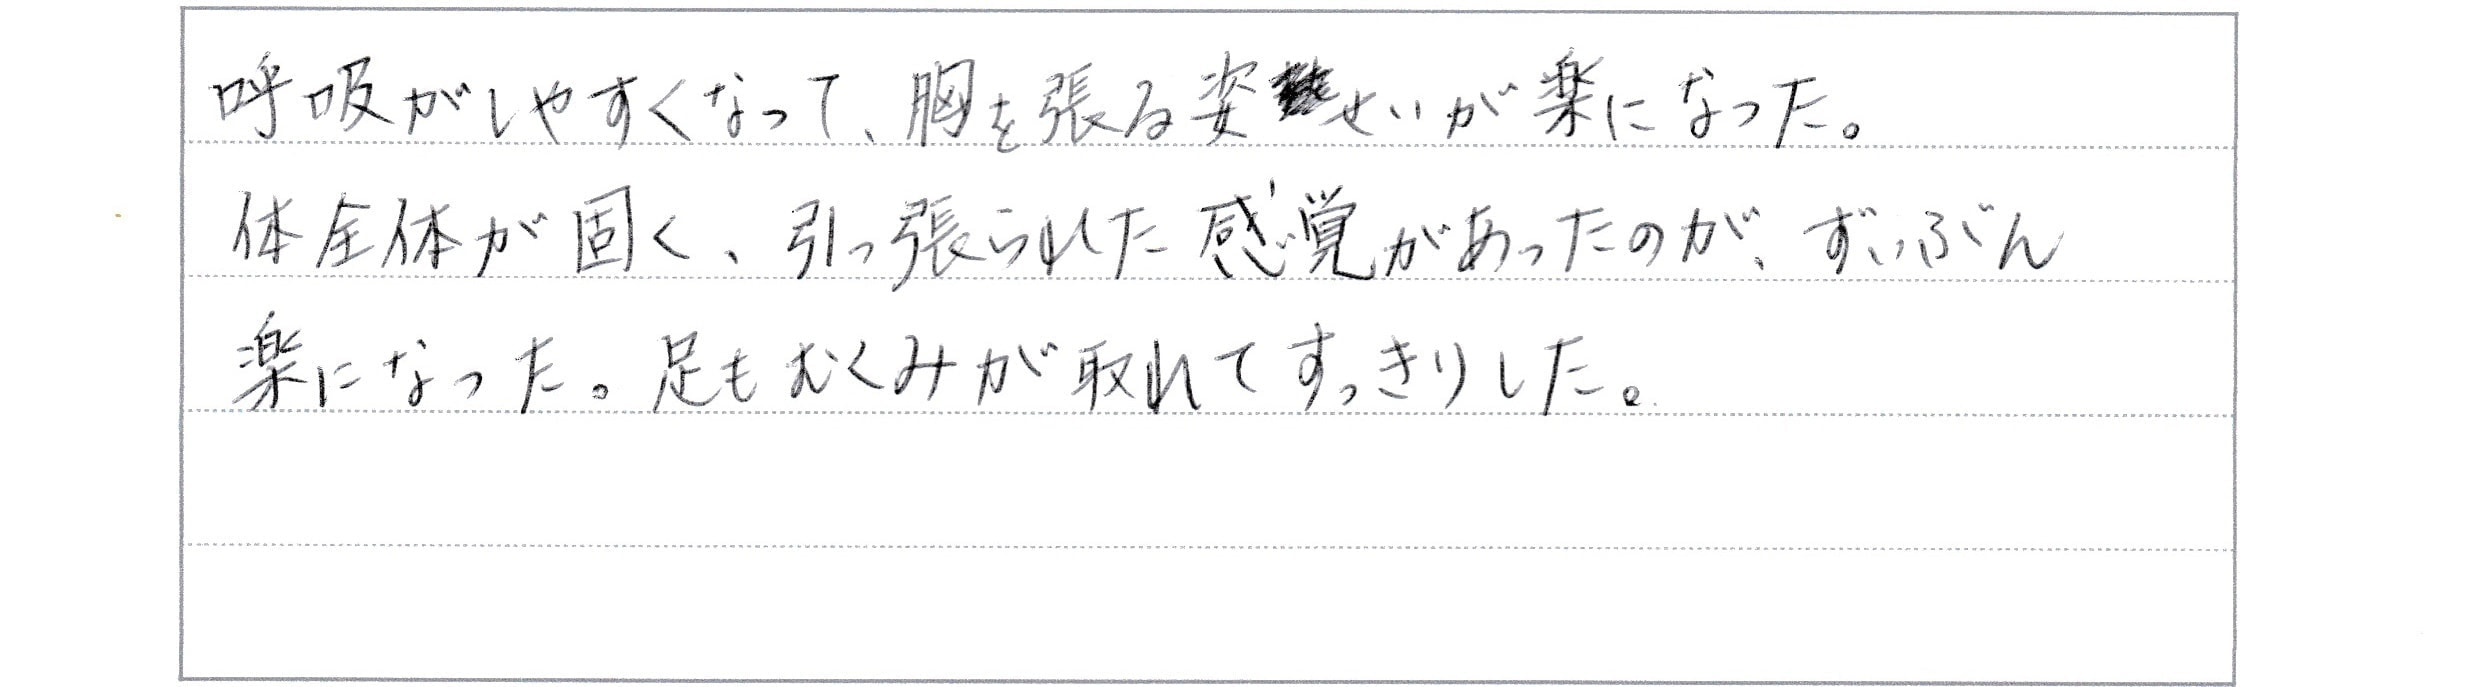 呼吸がしやすくなって、胸を張る姿せいが楽になった。
体全体が固く、引っ張られた感覚があったのが、ずいぶん
楽になった。足もむくみが取れてすっきりした。